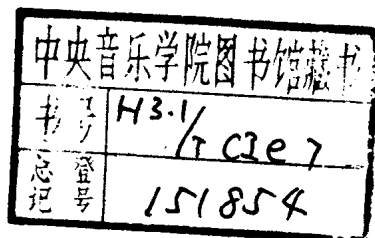 中央音乐学院图书馆藏书
书号 H3.1/TCIe7
总登记号 151854